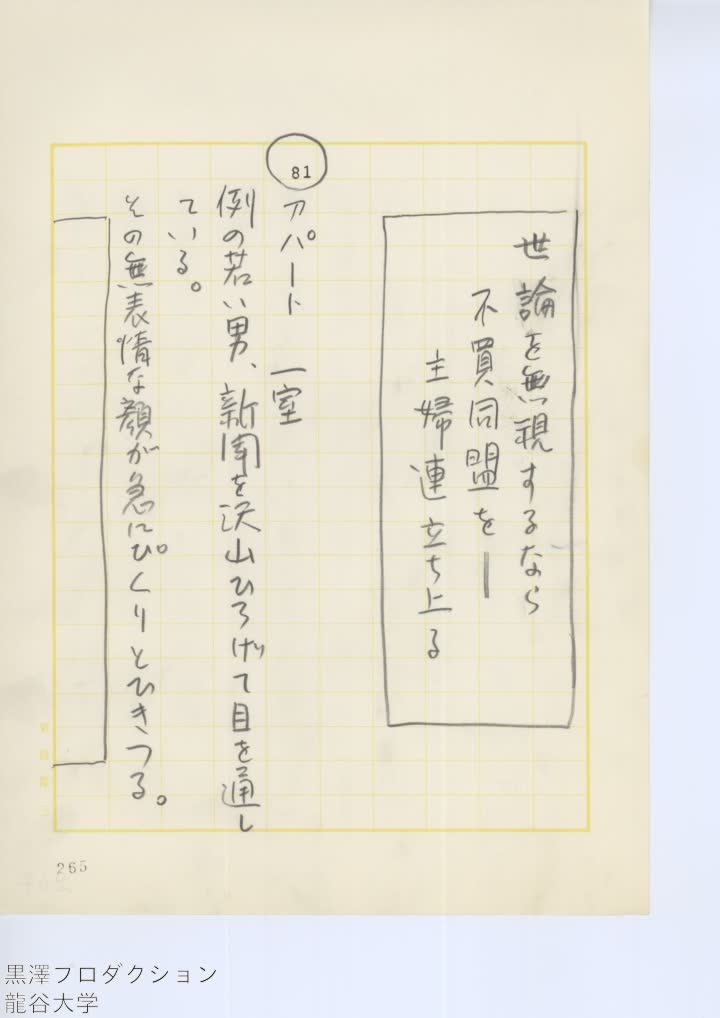 世論を無視するなら
不買同盟を―
主婦連立ち上る
81
アパート 一室
例の若い男、新聞を沢山ひろげて目を通し
ている。
その無表情な顔が急にぴくりとひきつる。
265
黒澤プロダクション
龍谷大学